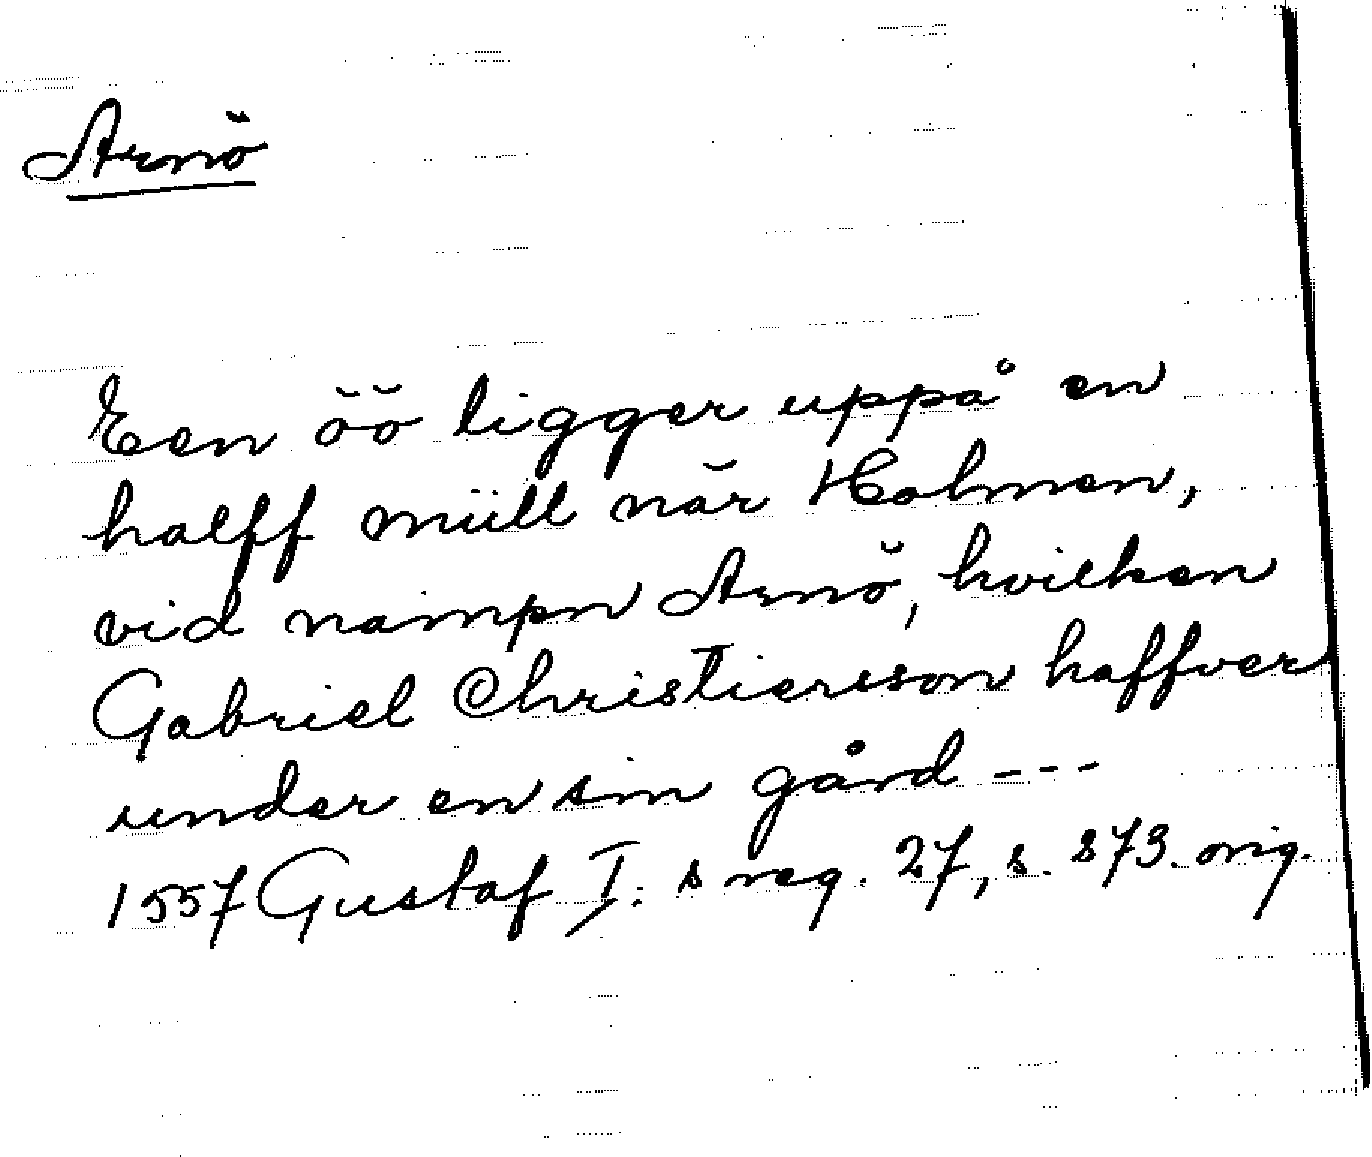 Arnö
Een öö ligger uppå en
halff müll när Holmen,
vid nampn Arnö, hvilken
Gabriel Christiersson haffver
under en sin gård ---
1557 Gustaf I: s reg. 27, s. 273. orig.